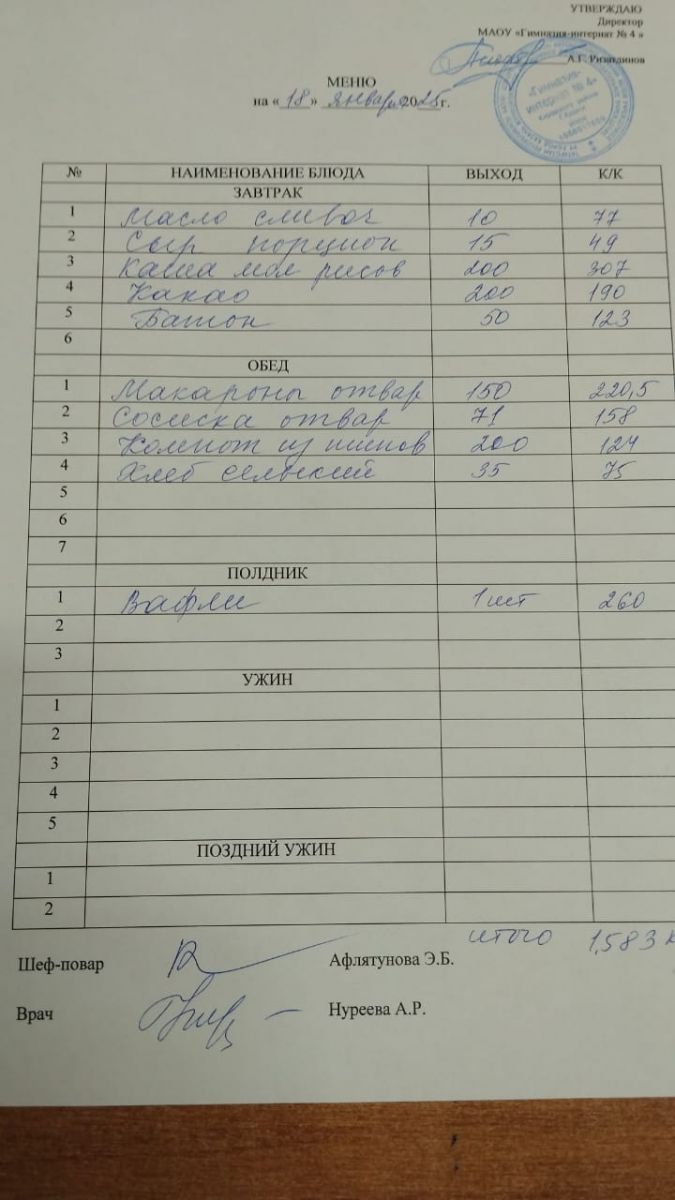 УТВЕРЖДАЮ
Директор
МАОУ «Гимназия-интернат № 4 »
А.Г. Ризатдинов
«Гимназия-
интернат № 4»
МЕНЮ
на « 18 » января 2025 г.
№ НАИМЕНОВАНИЕ БЛЮДА ВЫХОД К/К
ЗАВТРАК
1 Масло сливоч 10 77
2 Сыр порцион 15 49
3 Каша мол рисов 200 307
4 Какао 200 190
5 Батон 50 123
6
ОБЕД
1 Макароны отвар 150 220,5
2 Сосиска отвар 71 158
3 Компот из 200 124
4 Хлеб сельский 35 75
5
6
7
ПОЛДНИК
1 Вафли 1 шт 260
2
3
УЖИН
1
2
3
4
5
ПОЗДНИЙ УЖИН
1
2
итого 1583 к
Шеф-повар Афлятунова Э.Б.
Врач Нуреева А.Р.